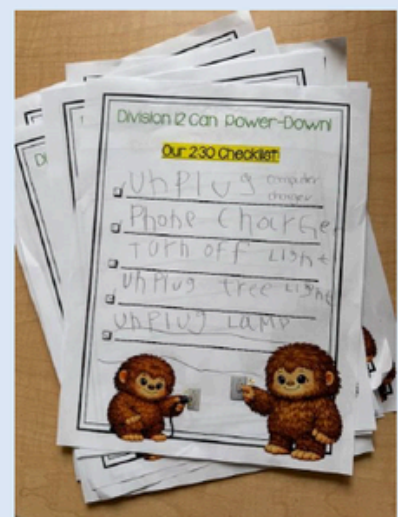 Division 12 Can Power-Down!
Our 2:30 Checklist:
unplug computer charger
Phone Charge
Turn off Light
unplug tree Light
unplug Lamp